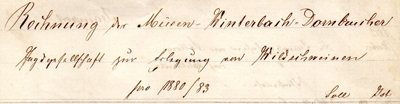 Rechnung der Müssen-Winterbach-Dornbucher
Jagdgesellschaft zur Erlegung von Wildschweinen
pro 1880/83
Soll Hat